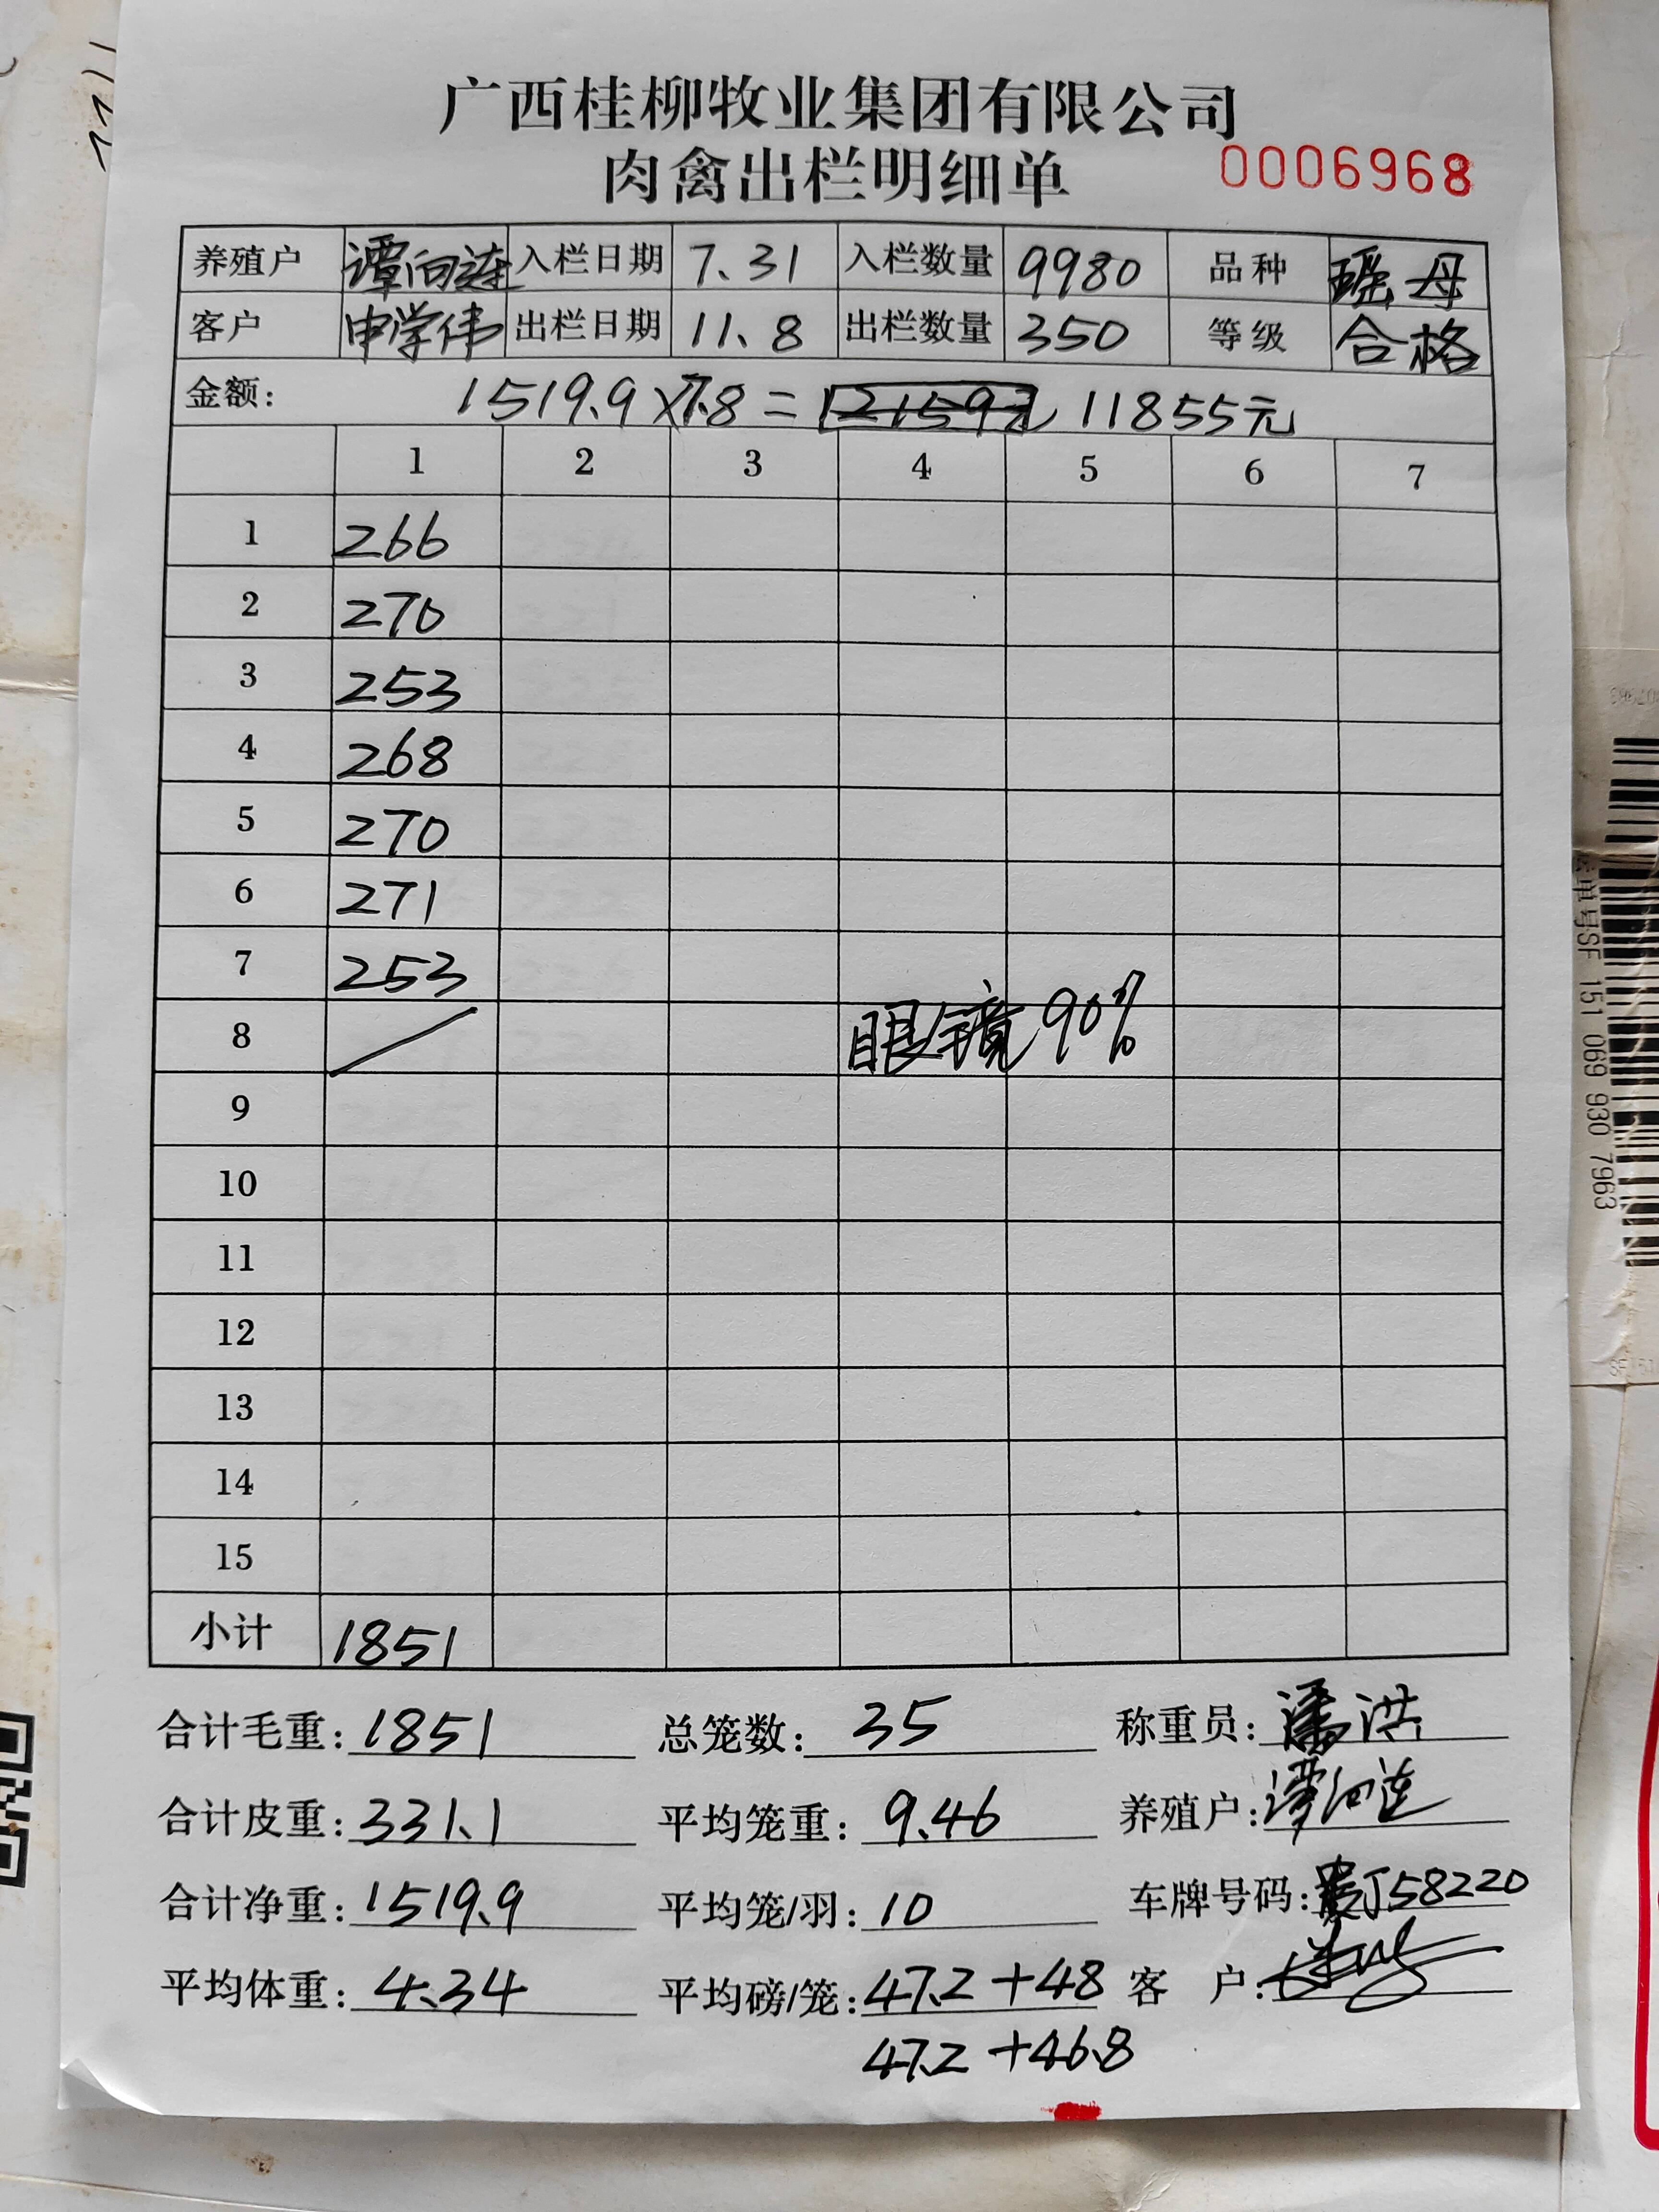 11
广西桂柳牧业集团有限公司
肉禽出栏明细单 0006968
养殖户 谭向连 入栏日期 7.31 入栏数量 9980 品种 瑶母
客户 申学伟 出栏日期 11.8 出栏数量 350 等级 合格
金额: 1519.9×7.8= 12159元 11855元
1 2 3 4 5 6 7
1 266
2 270
3 253
4 268
5 270
6 271
7 253
8 / 眼镜90%
9
10
11
12
13
14
15
小计 1851
合计毛重: 1851 总笼数: 35 称重员: 潘洪
合计皮重: 331.1 平均笼重: 9.46 养殖户: 谭向连
合计净重: 1519.9 平均笼/羽: 10 车牌号码: 贵J58220
平均体重: 4.34 平均磅/笼: 47.2+48 客 户:
47.2+46.8
单号SF 151 069 930 7963